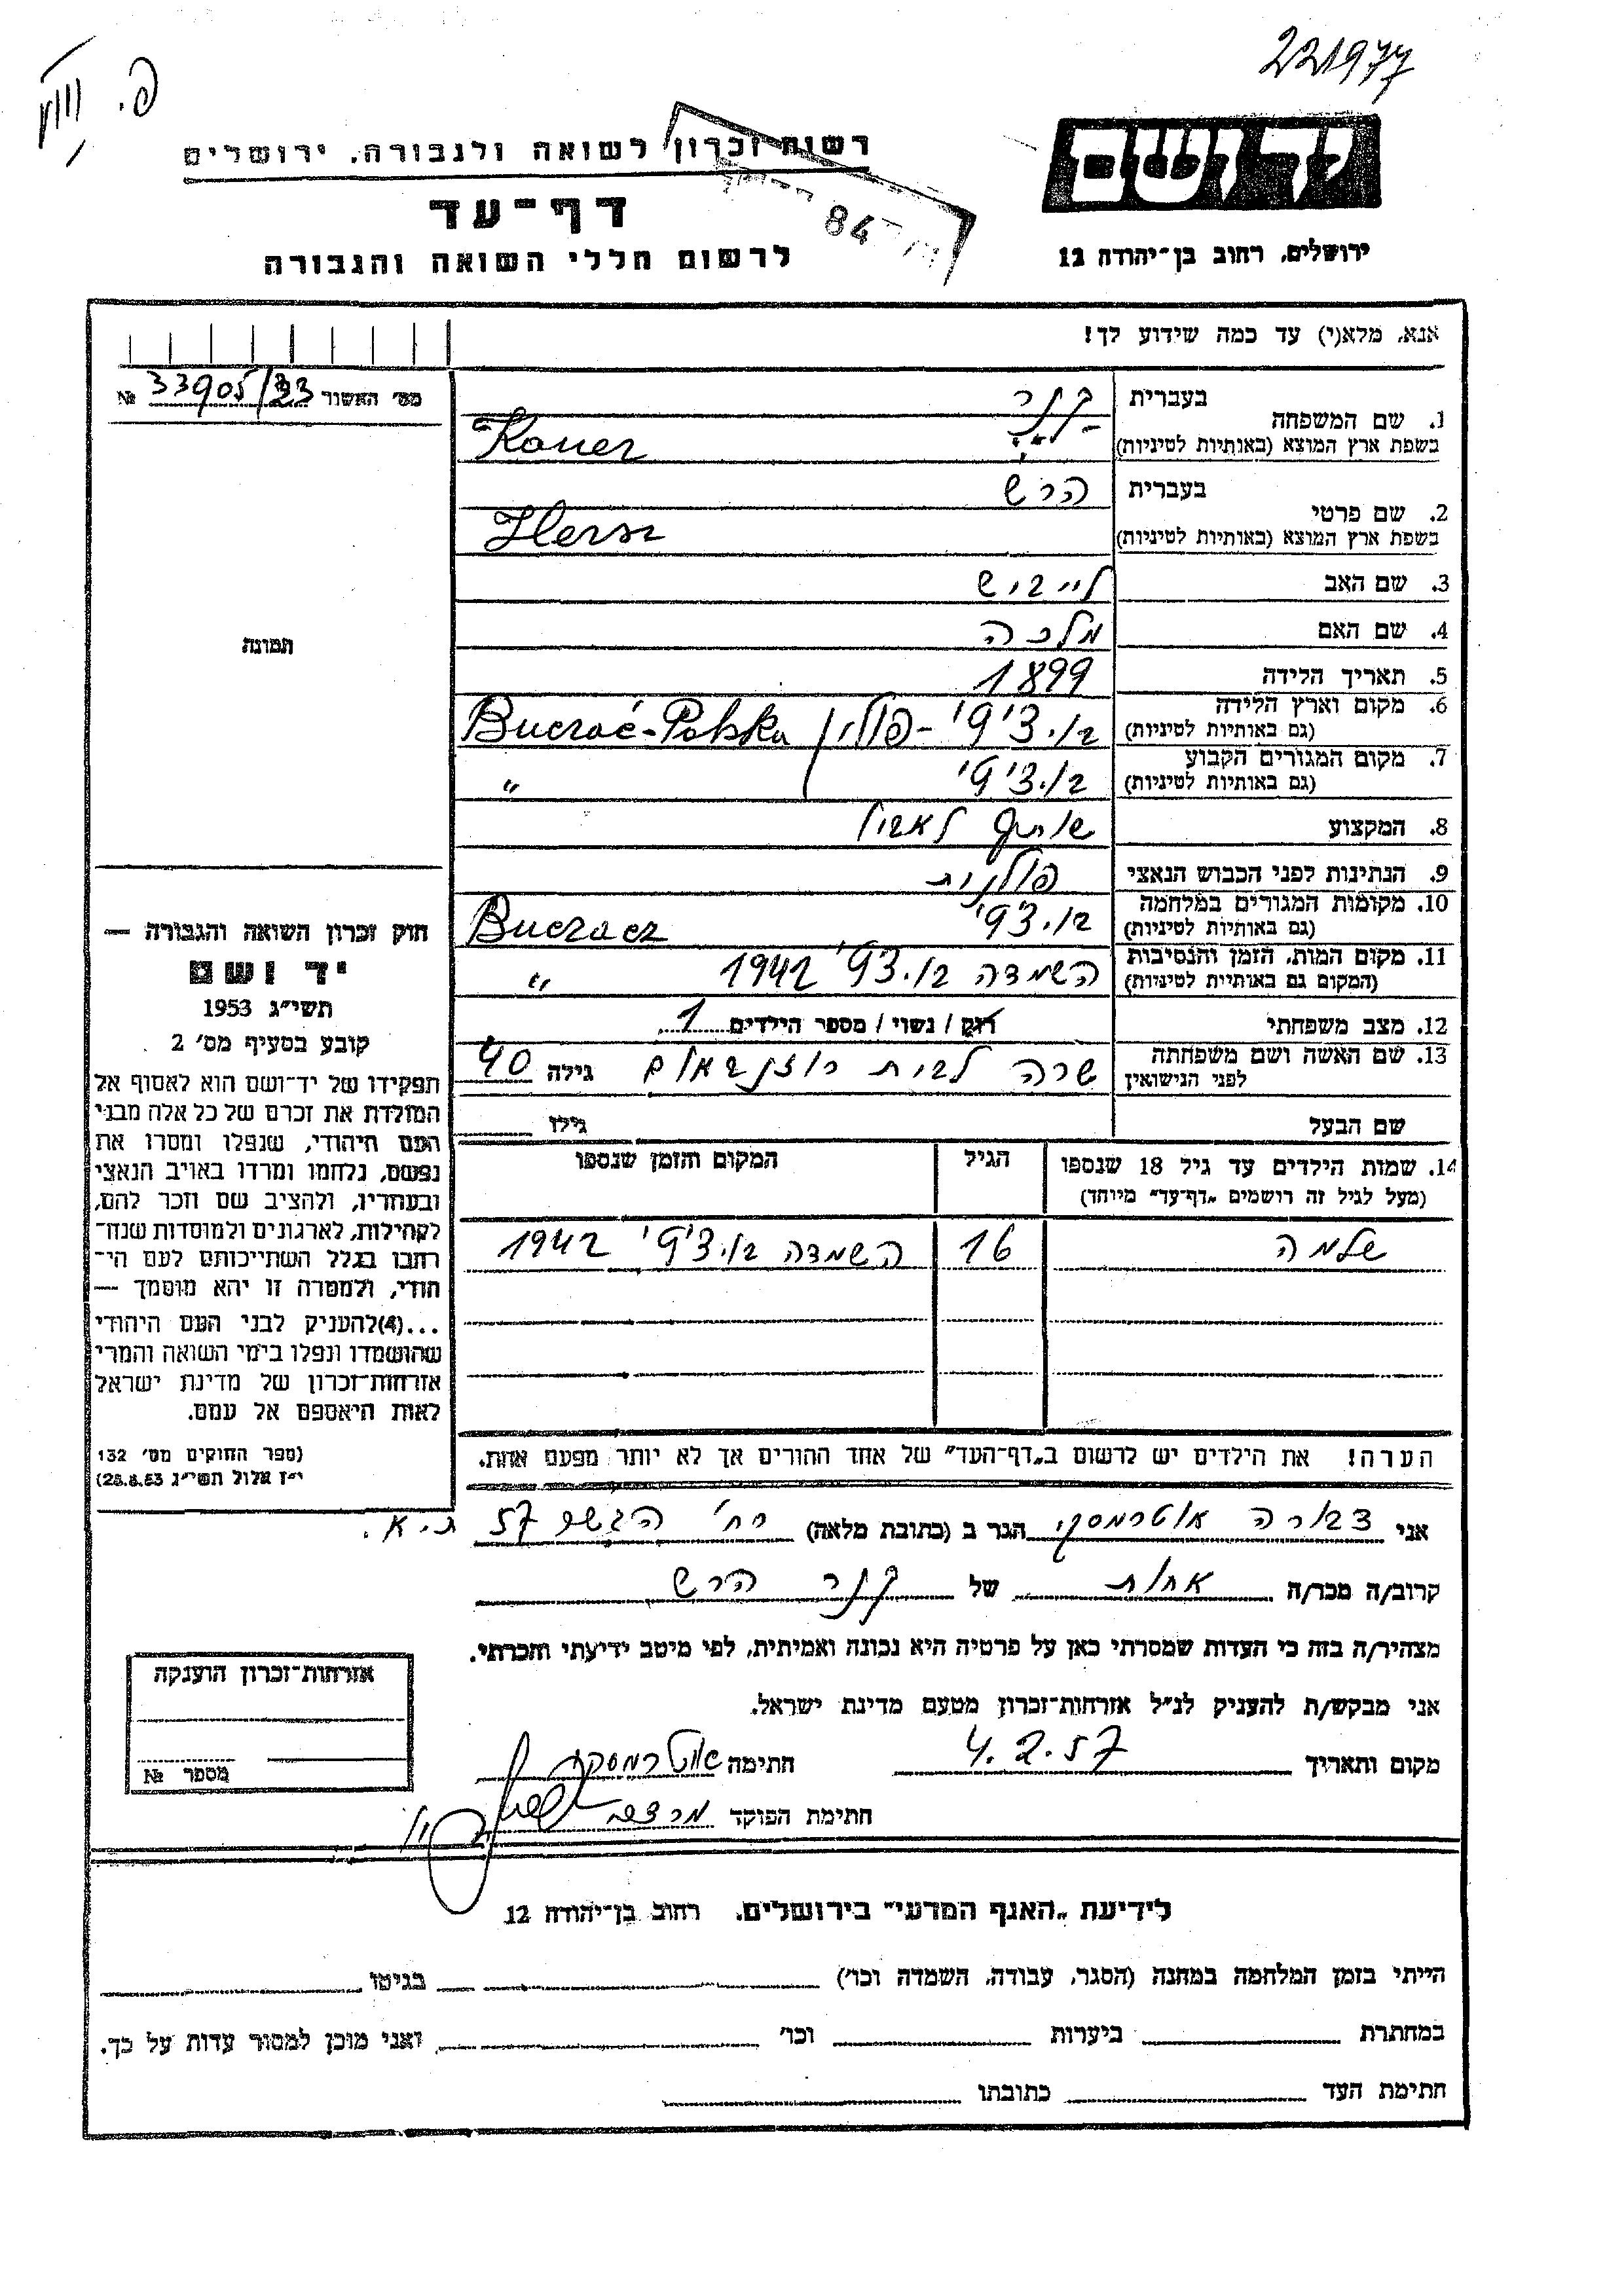 221977
פ.
יד ושם
רשות זכרון לשואה ולגבורה, ירושלים
דף־עד
לרשום חללי השואה והגבורה
84
ירושלים, רחוב בן־יהודה 12
אנא, מלא(י) עד כמה שידוע לך!
מס׳ האשור 33905/33 №
1. שם המשפחה
בעברית קנר
בשפת ארץ המוצא (באותיות לטיניות) Kaner
2. שם פרטי
בעברית הרש
בשפת ארץ המוצא (באותיות לטיניות) Hersz
3. שם האב לייביש
4. שם האם מלכה
5. תאריך הלידה 1899
6. מקום וארץ הלידה (גם באותיות לטיניות) בוצ׳ץ׳ - פולין Buczać - Polska
7. מקום המגורים הקבוע (גם באותיות לטיניות) בוצ׳ץ׳ "
8. המקצוע
9. הנתינות לפני הכבוש הנאצי פולנית
10. מקומות המגורים במלחמה (גם באותיות לטיניות) בוצ׳ץ׳ Buczacz
11. מקום המות, הזמן והנסיבות (המקום גם באותיות לטיניות) השמדה בוצ׳ץ׳ 1942 "
12. מצב משפחתי רוק / נשוי / מספר הילדים 1
13. שם האשה ושם משפחתה לפני הנישואין שרה לבית רוזנבאום גילה 40
שם הבעל גילו
14. שמות הילדים עד גיל 18 שנספו (מעל לגיל זה רושמים „דף־עד״ מיוחד) הגיל המקום והזמן שנספו
שלמה 16 השמדה בוצ׳ץ׳ 1942
הערה! את הילדים יש לרשום ב„דף־העד״ של אחד ההורים אך לא יותר מפעם אחת.
תמונה
חוק זכרון השואה והגבורה —
יד ושם
תשי״ג 1953
קובע בסעיף מס׳ 2
תפקידו של יד־ושם הוא לאסוף אל
המולדת את זכרם של כל אלה מבני
העם היהודי, שנפלו ומסרו את
נפשם, נלחמו ומרדו באויב הנאצי
ובעוזריו, ולהציב שם וזכר להם,
לקהילות, לארגונים ולמוסדות שנח־
רבו בגלל השתייכותם לעם הי־
הודי, ולמטרה זו יהא מוסמך —
...(4)להעניק לבני העם היהודי
שהושמדו ונפלו בימי השואה והמרי
אזרחות־זכרון של מדינת ישראל
לאות היאספם אל עמם.
(ספר החוקים מס׳ 132
י״ז אלול תשי״ג 28.8.53)
אני דבורה אוסטרמסקי הגר ב (כתובת מלאה) רח׳ 57 ת.א.
קרוב/ה מכר/ה אחות של קנר הרש
מצהיר/ה בזה כי העדות שמסרתי כאן על פרטיה היא נכונה ואמיתית, לפי מיטב ידיעתי והכרתי.
אני מבקש/ת להעניק לנ״ל אזרחות־זכרון מטעם מדינת ישראל.
מקום ותאריך 4.2.57 חתימה
חתימת הפוקד
אזרחות־זכרון הוענקה
מספר №
לידיעת „האגף המדעי״ בירושלים, רחוב בן־יהודה 12
הייתי בזמן המלחמה במחנה (הסגר, עבודה, השמדה וכו׳) בגיטו
במחתרת ביערות וכו׳ ואני מוכן למסור עדות על כך.
חתימת העד כתובתו